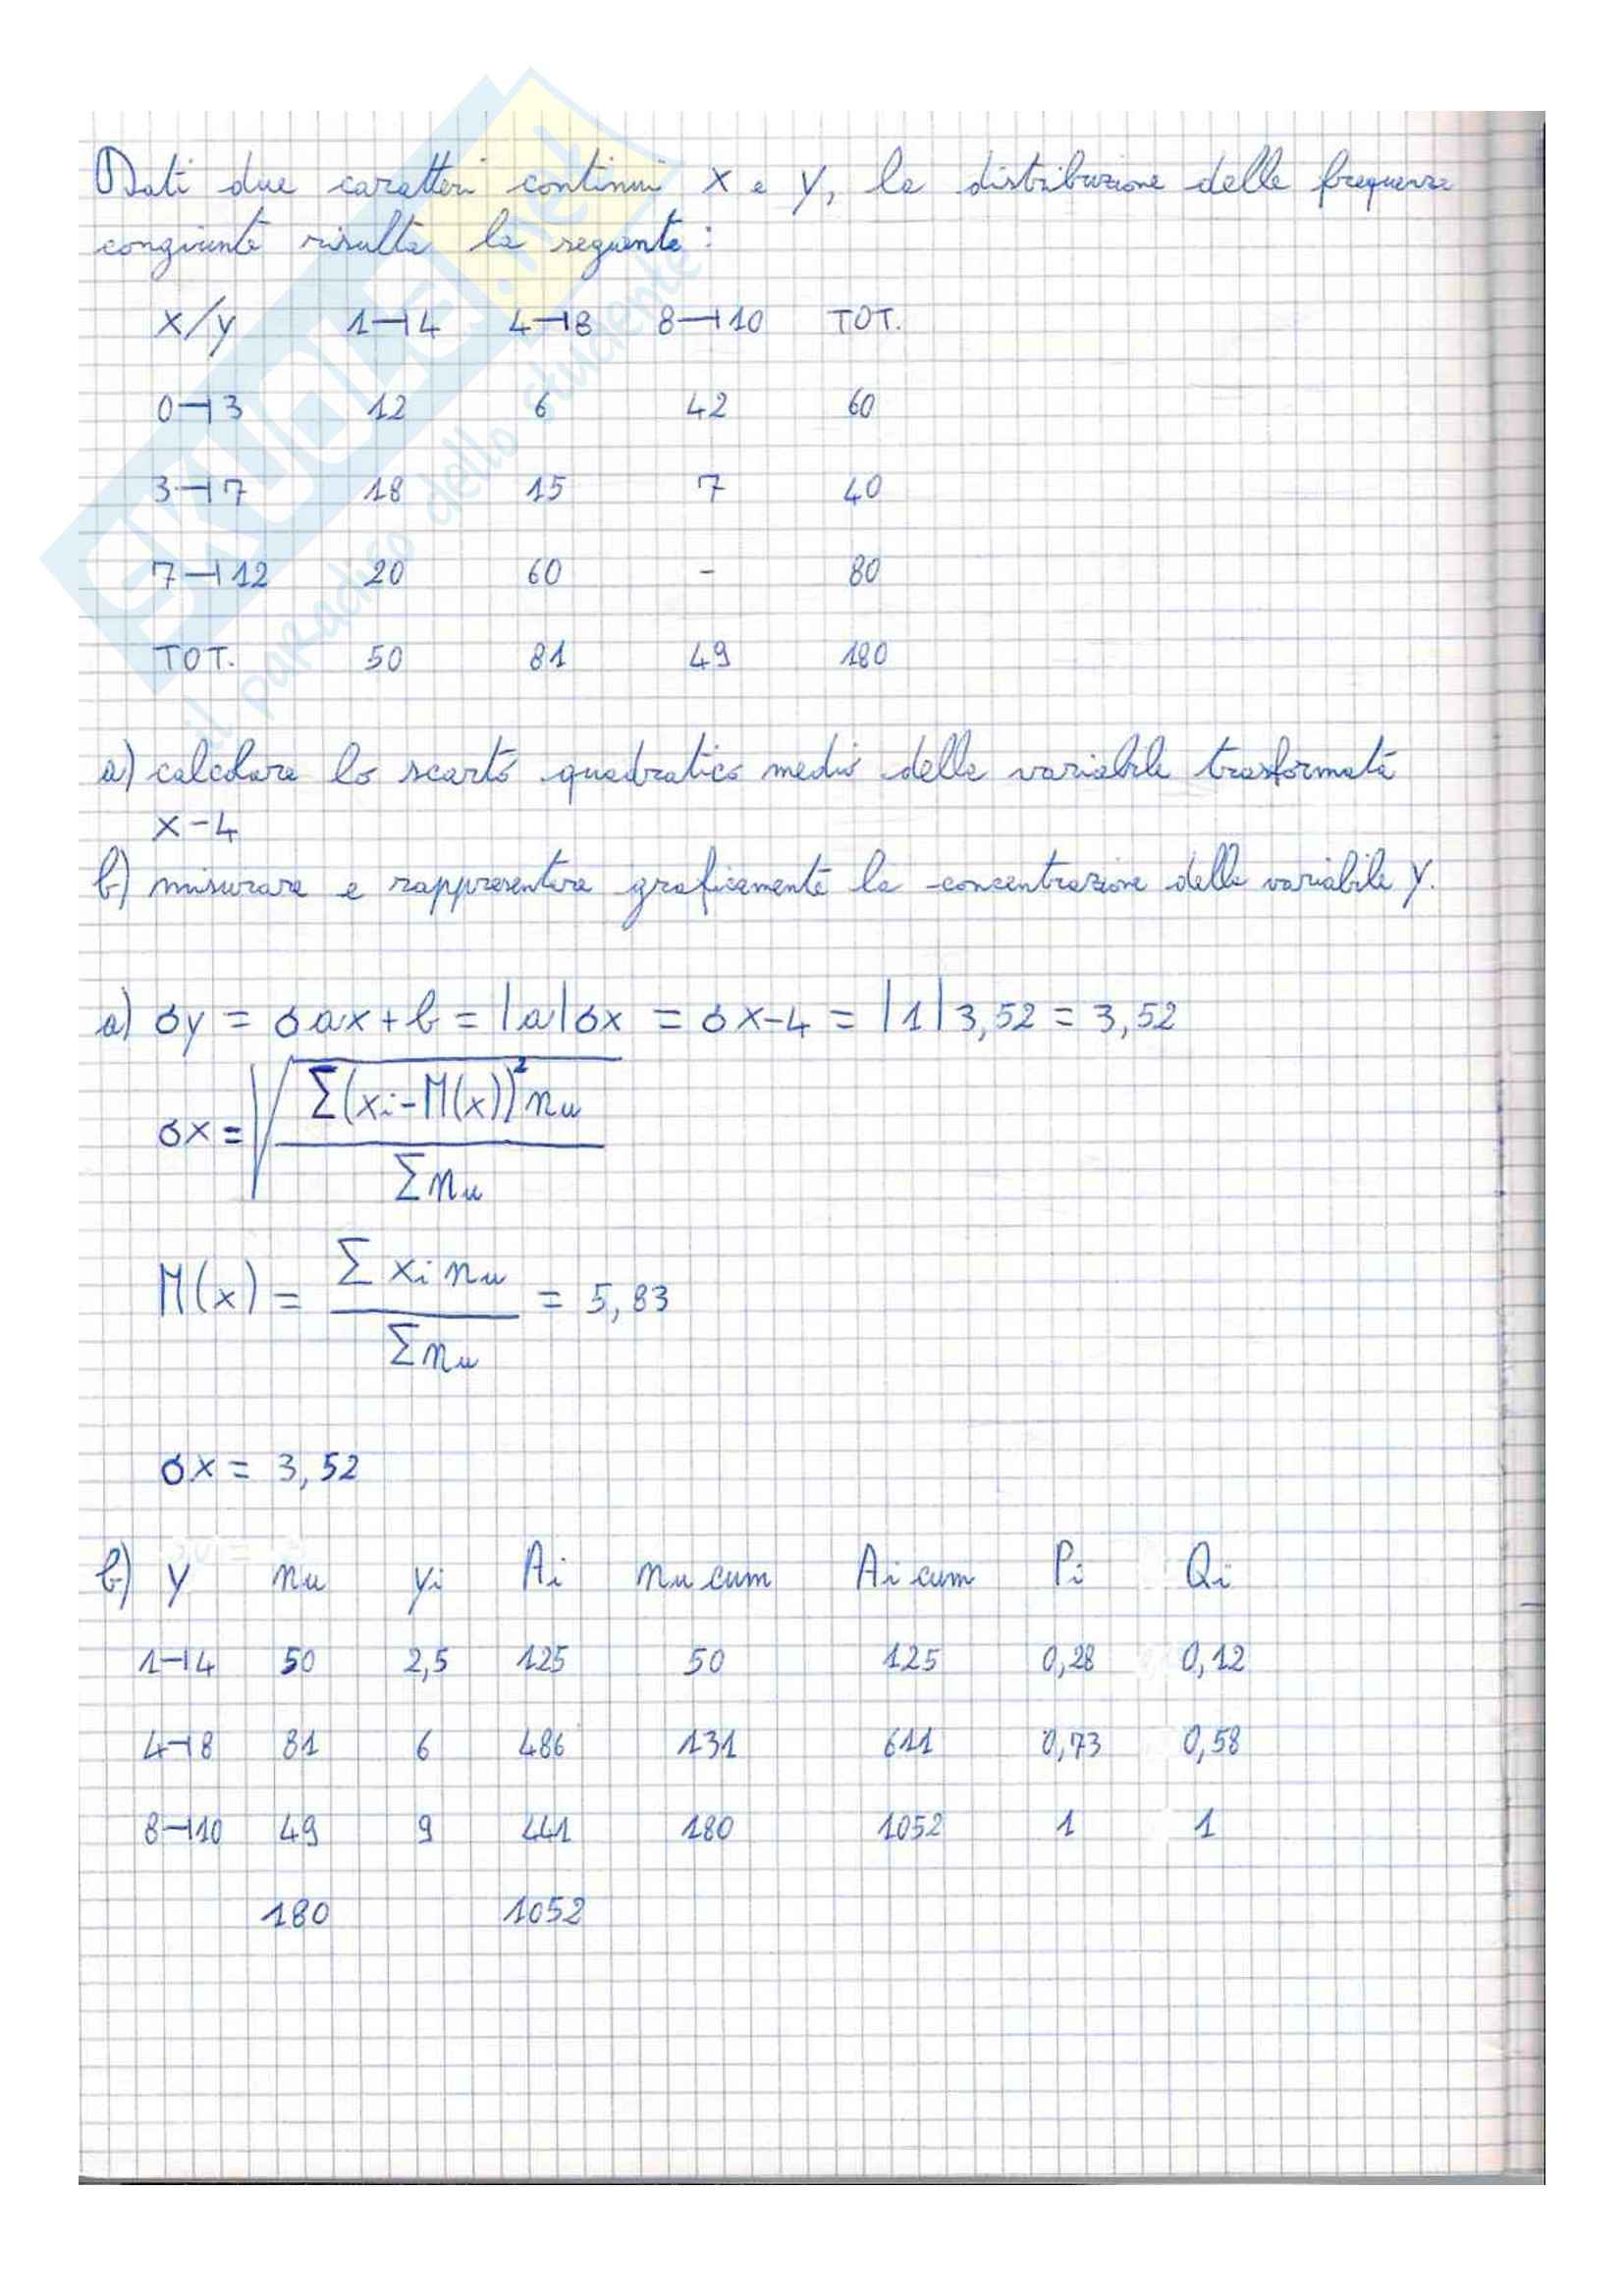 Dati due caratteri continui X e Y, la distribuzione delle frequenze
congiunte risulta la seguente:
X/Y 1⊣4 4⊣8 8⊣10 TOT.
0⊣3 12 6 42 60
3⊣7 18 15 7 40
7⊣12 20 60 - 80
TOT. 50 81 49 180
a) calcolare lo scarto quadratico medio della variabile trasformata
X-4
b) misurare e rappresentare graficamente la concentrazione della variabile Y.
a) σy = σax+b = |a|σx = σx-4 = |1|3,52 = 3,52
σx = √Σ(xi-M(x))²nu
Σnu
M(x) = Σ xi nu = 5,83
Σnu
σx = 3,52
b) Y nu yi Ai nu cum Ai cum Pi Qi
1⊣4 50 2,5 125 50 125 0,28 0,12
4⊣8 81 6 486 131 611 0,73 0,58
8⊣10 49 9 441 180 1052 1 1
180 1052
SKUOLA.net
il paradiso dello studente